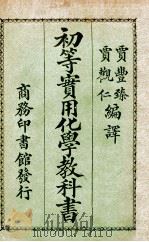 賈豐臻
賈觀仁
編譯
初等實用化學教科書
商務印書館發行